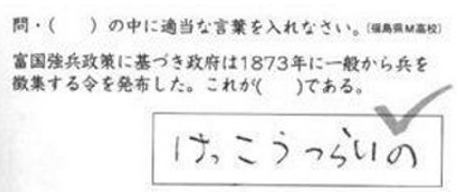 問・(　　)の中に適当な言葉を入れなさい。(福島県M高校)
富国強兵政策に基づき政府は1873年に一般から兵を
徴集する令を発布した。これが(　　)である。
けっこうつらいの